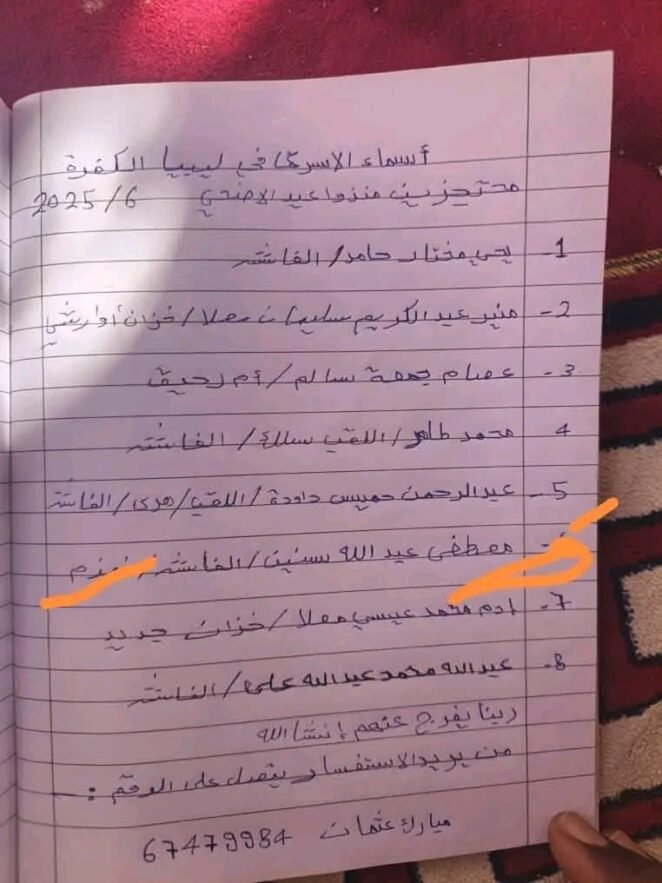 أسماء الاسرى في ليبيا الكفرة
محتجزين منذ وا عيد الاضحي 2025/6
1- يحي مختار حامد/ الفاشر
2- منير عبد الكريم سليمان معلا/ خزان أوارشي
3- عصام جمعة سالم/ أم رحيق
4 محمد طاهر/ اللقب سللك/ الفاشر
5- عبد الرحمن خميس داودة/ اللقب/ هدى/ الفاشر
مصطفى عبد الله سنين/ الفاشر
7- ادم محمد عيسي معلا/ خزان جديد
8- عبد الله محمد عبد الله علي/ الفاشر
ربنا يفرج عنهم إنشا الله
من يريد الاستفسار يتصل على الرقم :ـ
مبارك عثمان 67479984